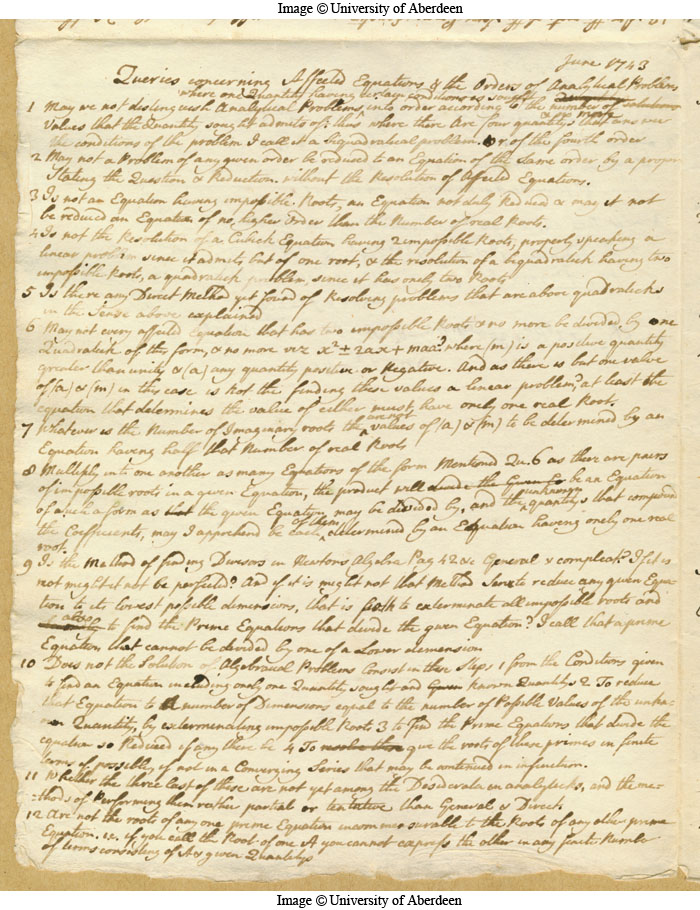 Image © University of Aberdeen
June 1743
Queries concerning Affected Equations & the Orders of Analytical Problems
where one Quantity having certain conditions is sought
1 May we not distinguish Analytical Problems, into order according to the number of
Values that the Quantity sought admits of; thus where there are four quantitys that answer
the conditions of the problem I call it a biquadratical problem. or of the fourth order
2 May not a Problem of any given order be reduced to an Equation of the same order by a proper
Stating the Question & Reduction. without the Resolution of Affected Equations.
3 Is not an Equation having impossible Roots, an Equation not duly Reduced & may it not
be reduced to an Equation of no higher Order than the Number of real Roots.
4 Is not the Resolution of a Cubick Equation having 2 impossible Roots, properly speaking a
linear problem since it admits but of one root, & the resolution of a biquadratick having two
impossible Roots, a quadratick problem, since it has only two Roots
5 Is there any Direct Method yet found of Resolving problems that are above quadraticks
in the Sense above explained
6 May not every affected Equation that has two impossible Roots & no more be divided by one
Quadratick of this form, & no more viz x² ± 2ax + maa? where (m) is a positive quantity
greater than unity & (a) any quantity positive or Negative. And as there is but one value
of (a) & (m) in this case is not the finding these values a linear problem? at least the
equation that determines the value of either must have only one real Root.
7 Whatever is the Number of Imaginary roots the values of (a) & (m) to be determined by an
are not
Equation having half that Number of real Roots
8 Multiply into one another as many Equations of the form Mentioned Qu. 6 as there are pairs
of impossible roots in a given Equation, the product will be an Equation
of such a form as the given Equation may be divided by, and the unknown quantitys that compound
the Coefficients, may I apprehend be each of them determined by an Equation having only one real
root.
9 Is the Method of finding Divisors in Newtons Algebra Pag 42 &c General & compleat? If it is
not might it not be perfected? And if it is might not that Method Serve to reduce any given Equa-
tion to its lowest possible dimensions, that is both to exterminate all impossible roots and
also to find the Prime Equations that divide the given Equation? I call that a prime
Equation that cannot be divided by one of a Lower dimension
10 Does not the Solution of Algebraical Problems Consist in these Steps 1 from the Conditions given
to find an Equation including only one Quantity sought and known Quantitys 2 To reduce
that Equation to a number of Dimensions equal to the number of Possible Values of the unkno-
wn Quantity, by exterminating impossible Roots 3 to find the Prime Equations that divide the
equation so Reduced if any there be 4 To give the roots of these primes in finite
terms if possible, if not in a Converging Series that may be continued in infinitum.
11 Whether the three last of these are not yet among the Desiderata in analyticks, and the me-
thods of Performing them rather partial or tentative than General & Direct.
12 Are not the roots of any one prime Equation incommensurable to the Roots of any other prime
Equation. i.e. if you call the Root of one A you cannot express the other in any finite Number
of terms consisting of A & given Quantitys
Image © University of Aberdeen